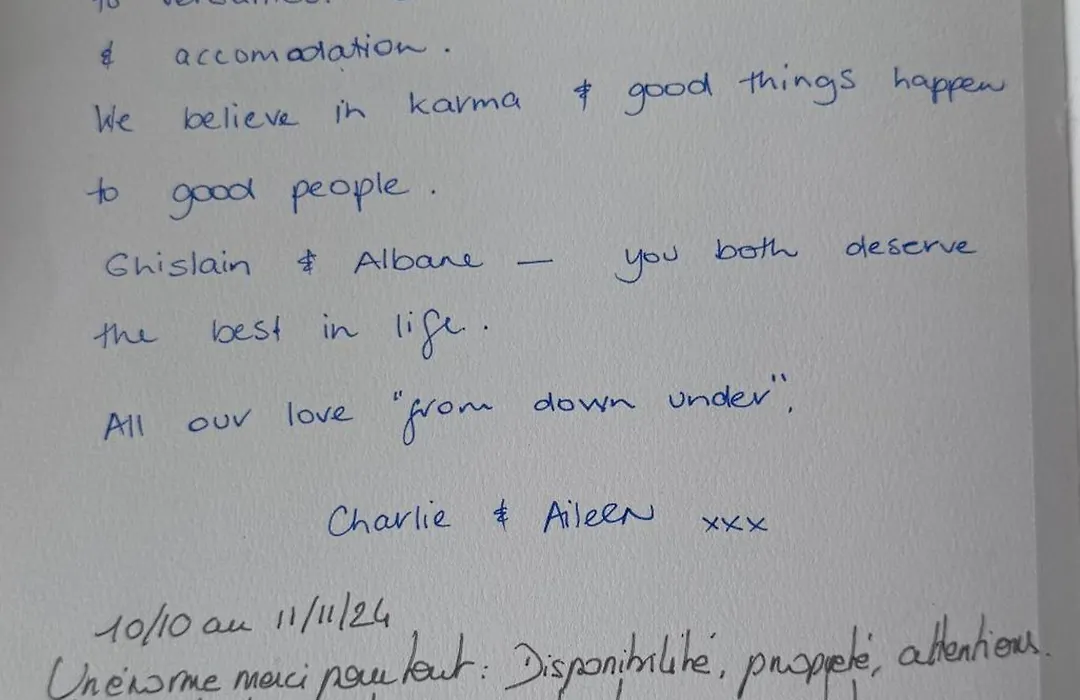 to
& accomodation.
We believe in karma & good things happen
to good people.
Ghislain & Albane — you both deserve
the best in life.
All our love "from down under".
Charlie & Aileen xxx
10/10 au 11/11/24
Un énorme merci pour tout : Disponibilité, propreté, attentions.